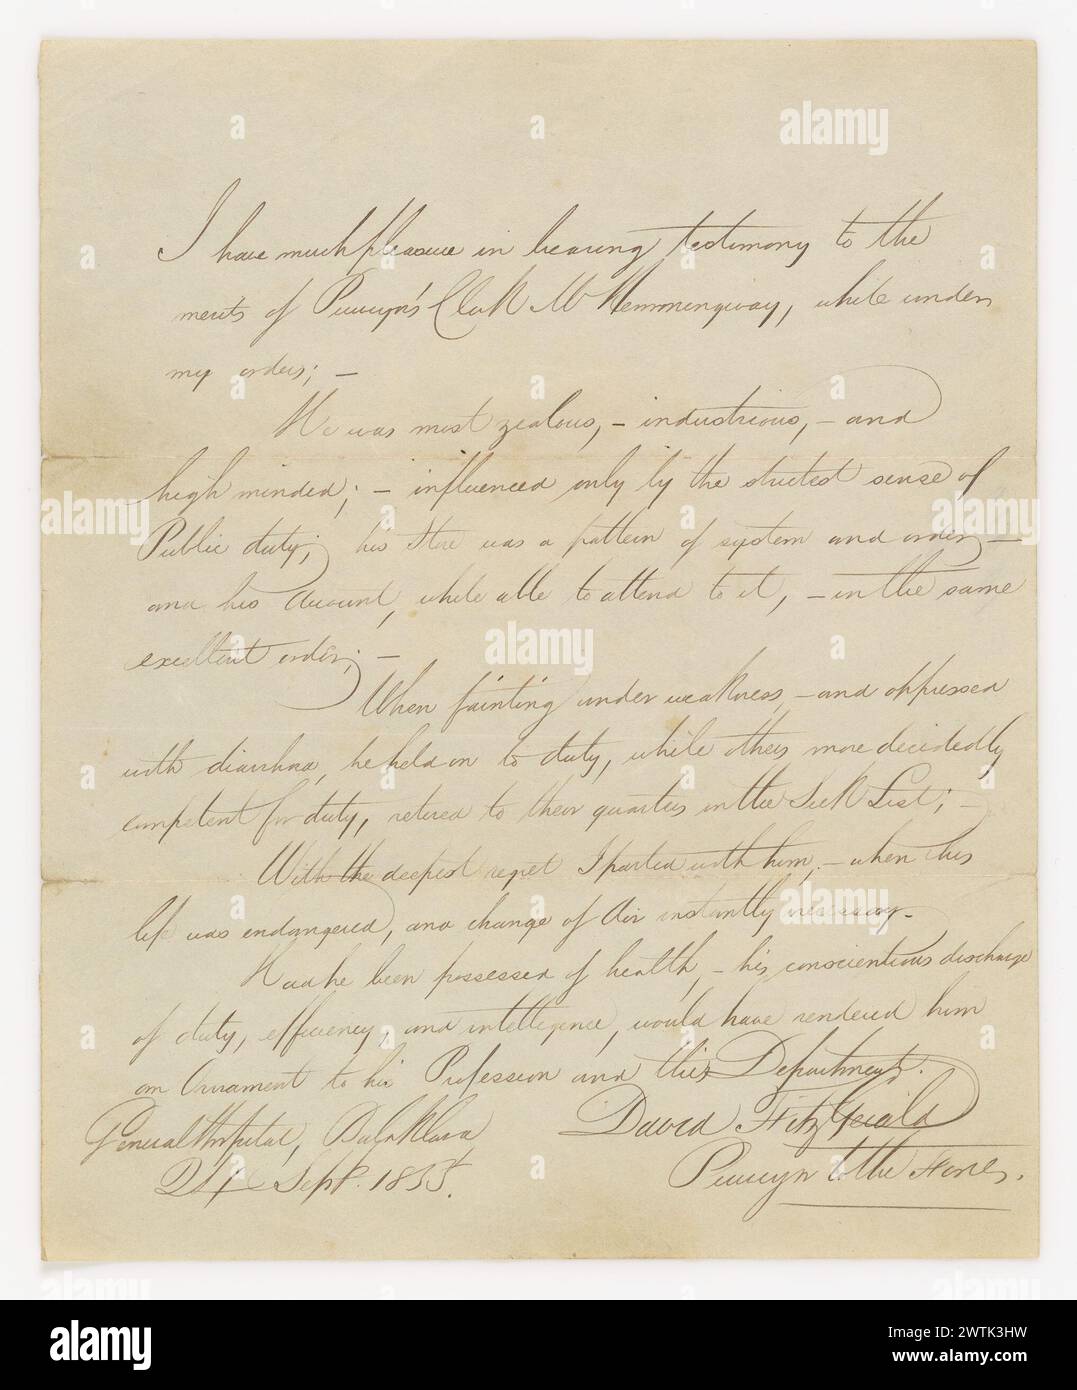 I have much pleasure in bearing testimony to the
merits of Purveyor's Clerk Mr Hemmingway, while under
my orders; –
He was most zealous, – industrious, – and
high minded; – influenced only by the strictest sense of
Public duty; his Store was a pattern of system and order, –
and his Account, while able to attend to it, – in the same
excellent order; –
When fainting under weakness, – and oppressed
with diarrhœa, he held on to duty, while others more decidedly
competent for duty, retired to their quarters in the Sick List; –
With the deepest regret I parted with him, – when his
life was endangered, and change of Air instantly necessary. –
Had he been possessed of health, – his conscientious discharge
of duty, efficiency, and intelligence, would have rendered him
an Ornament to his Profession and this Department.
General Hospital, Balaklava
24 Sept. 1855.
David FitzGerald
Purveyor to the Forces.
alamy
Image ID: 2WTK3HW
www.alamy.com